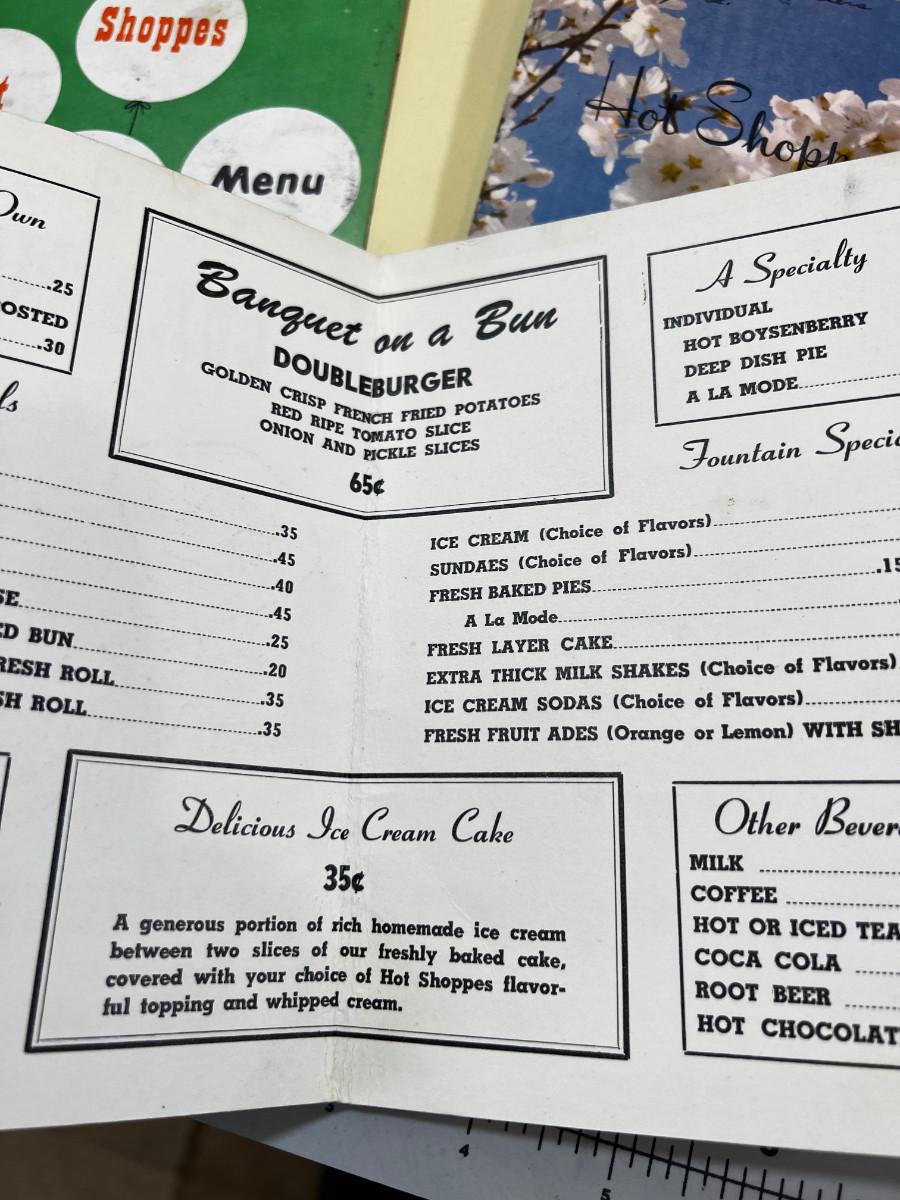 Shoppes
Menu
Hot Shopp
Own
.25
OSTED
.30
ls
Banquet on a Bun
DOUBLEBURGER
GOLDEN CRISP FRENCH FRIED POTATOES
RED RIPE TOMATO SLICE
ONION AND PICKLE SLICES
65¢
A Specialty
INDIVIDUAL
HOT BOYSENBERRY
DEEP DISH PIE
A LA MODE
Fountain Specia
.35
.45
.40
SE .45
ED BUN .25
.20
RESH ROLL .35
SH ROLL .35
ICE CREAM (Choice of Flavors)
SUNDAES (Choice of Flavors)
FRESH BAKED PIES .15
A La Mode
FRESH LAYER CAKE
EXTRA THICK MILK SHAKES (Choice of Flavors)
ICE CREAM SODAS (Choice of Flavors)
FRESH FRUIT ADES (Orange or Lemon) WITH SH
Delicious Ice Cream Cake
35¢
A generous portion of rich homemade ice cream
between two slices of our freshly baked cake,
covered with your choice of Hot Shoppes flavor-
ful topping and whipped cream.
Other Bever
MILK
COFFEE
HOT OR ICED TEA
COCA COLA
ROOT BEER
HOT CHOCOLAT
4
5